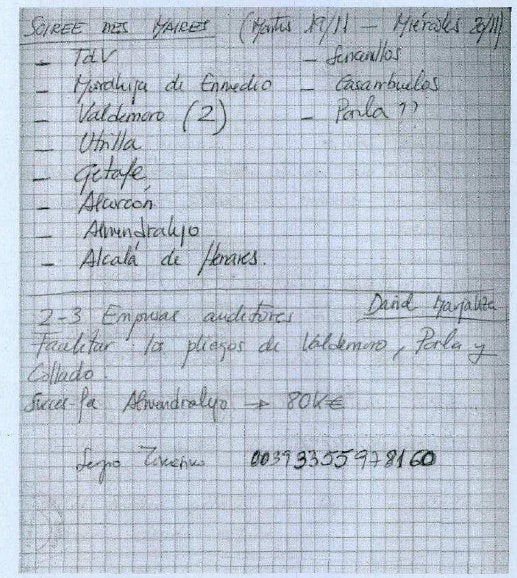 SOIREE DES MAIRES (Martes 19/11 – Miércoles 20/11)
– TdV
– Moraleja de Enmedio
– Valdemoro (2)
– Utrilla
– Getafe
– Alarcón
– Almendralejo
– Alcalá de Henares.
– Serranillos
– Casarrubuelos
– Parla ??
2-3 Empresas auditoras David Marjaliza
Facilitar los pliegos de Valdemoro, Parla y
Collado.
Almendralejo → 80K€
0039 3355978160